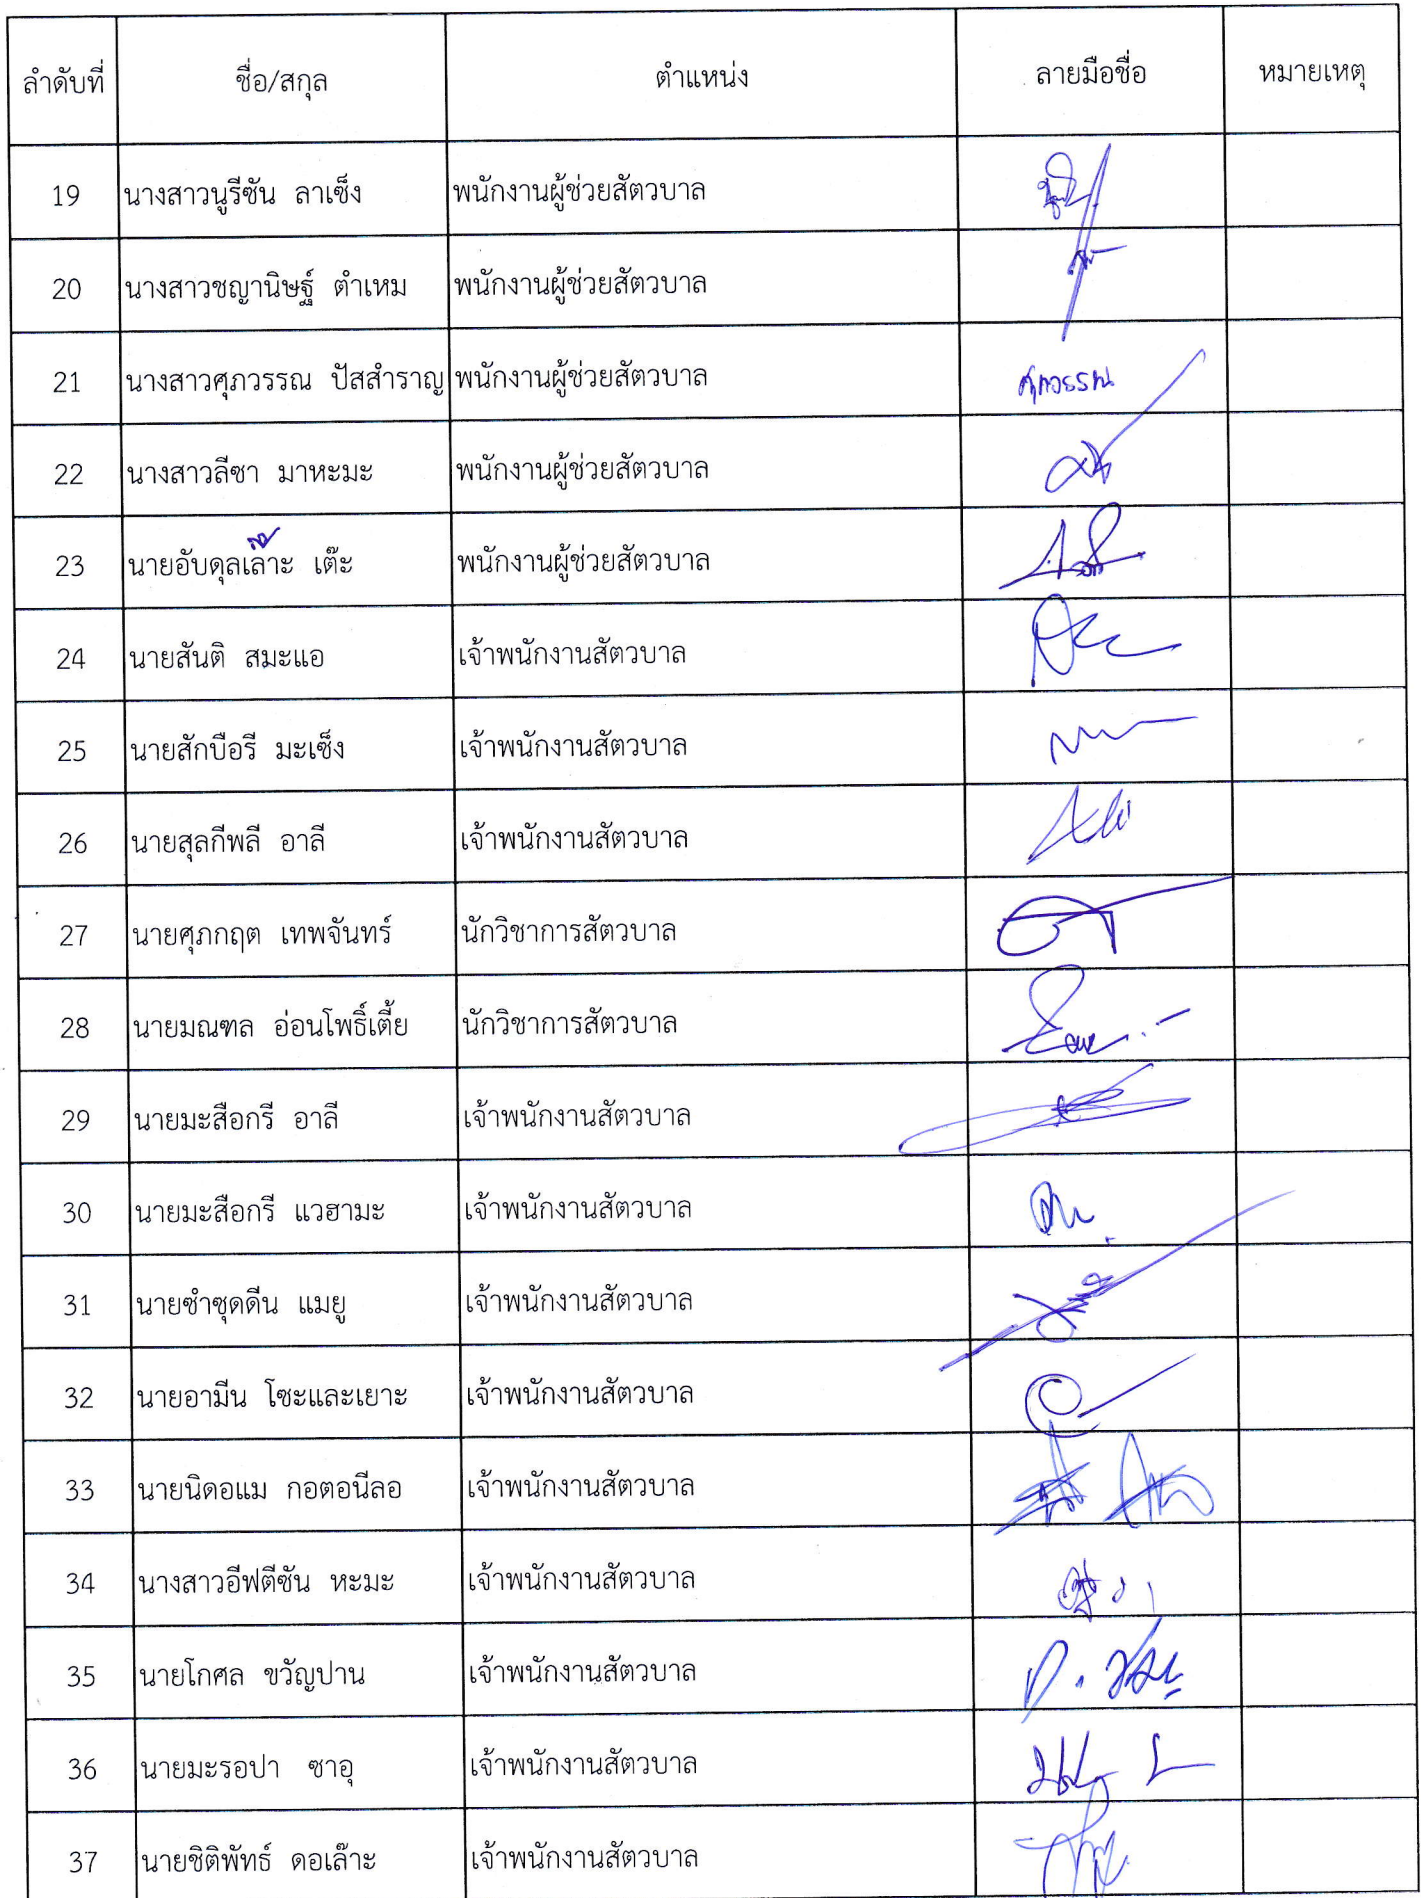 ลำดับที่ ชื่อ/สกุล ตำแหน่ง ลายมือชื่อ หมายเหตุ
19 นางสาวนูรีซัน ลาเซ็ง พนักงานผู้ช่วยสัตวบาล
20 นางสาวชญานิษฐ์ ตำเหม พนักงานผู้ช่วยสัตวบาล
21 นางสาวศุภวรรณ ปัสสำราญ พนักงานผู้ช่วยสัตวบาล ศุภวรรณ
22 นางสาวลีซา มาหะมะ พนักงานผู้ช่วยสัตวบาล
23 นายอับดุลเล๊าะ เต๊ะ พนักงานผู้ช่วยสัตวบาล
24 นายสันติ สมะแอ เจ้าพนักงานสัตวบาล
25 นายสักบือรี มะเซ็ง เจ้าพนักงานสัตวบาล
26 นายสุลกีพลี อาลี เจ้าพนักงานสัตวบาล
27 นายศุภกฤต เทพจันทร์ นักวิชาการสัตวบาล
28 นายมณฑล อ่อนโพธิ์เตี้ย นักวิชาการสัตวบาล
29 นายมะสือกรี อาลี เจ้าพนักงานสัตวบาล
30 นายมะสือกรี แวฮามะ เจ้าพนักงานสัตวบาล
31 นายซำซุดดีน แมยู เจ้าพนักงานสัตวบาล
32 นายอามีน โซะและเยาะ เจ้าพนักงานสัตวบาล
33 นายนิดอแม กอตอนีลอ เจ้าพนักงานสัตวบาล
34 นางสาวอีฟตีซัน หะมะ เจ้าพนักงานสัตวบาล
35 นายโกศล ขวัญปาน เจ้าพนักงานสัตวบาล
36 นายมะรอปา ซาอุ เจ้าพนักงานสัตวบาล
37 นายชิติพัทธ์ ดอเล๊าะ เจ้าพนักงานสัตวบาล